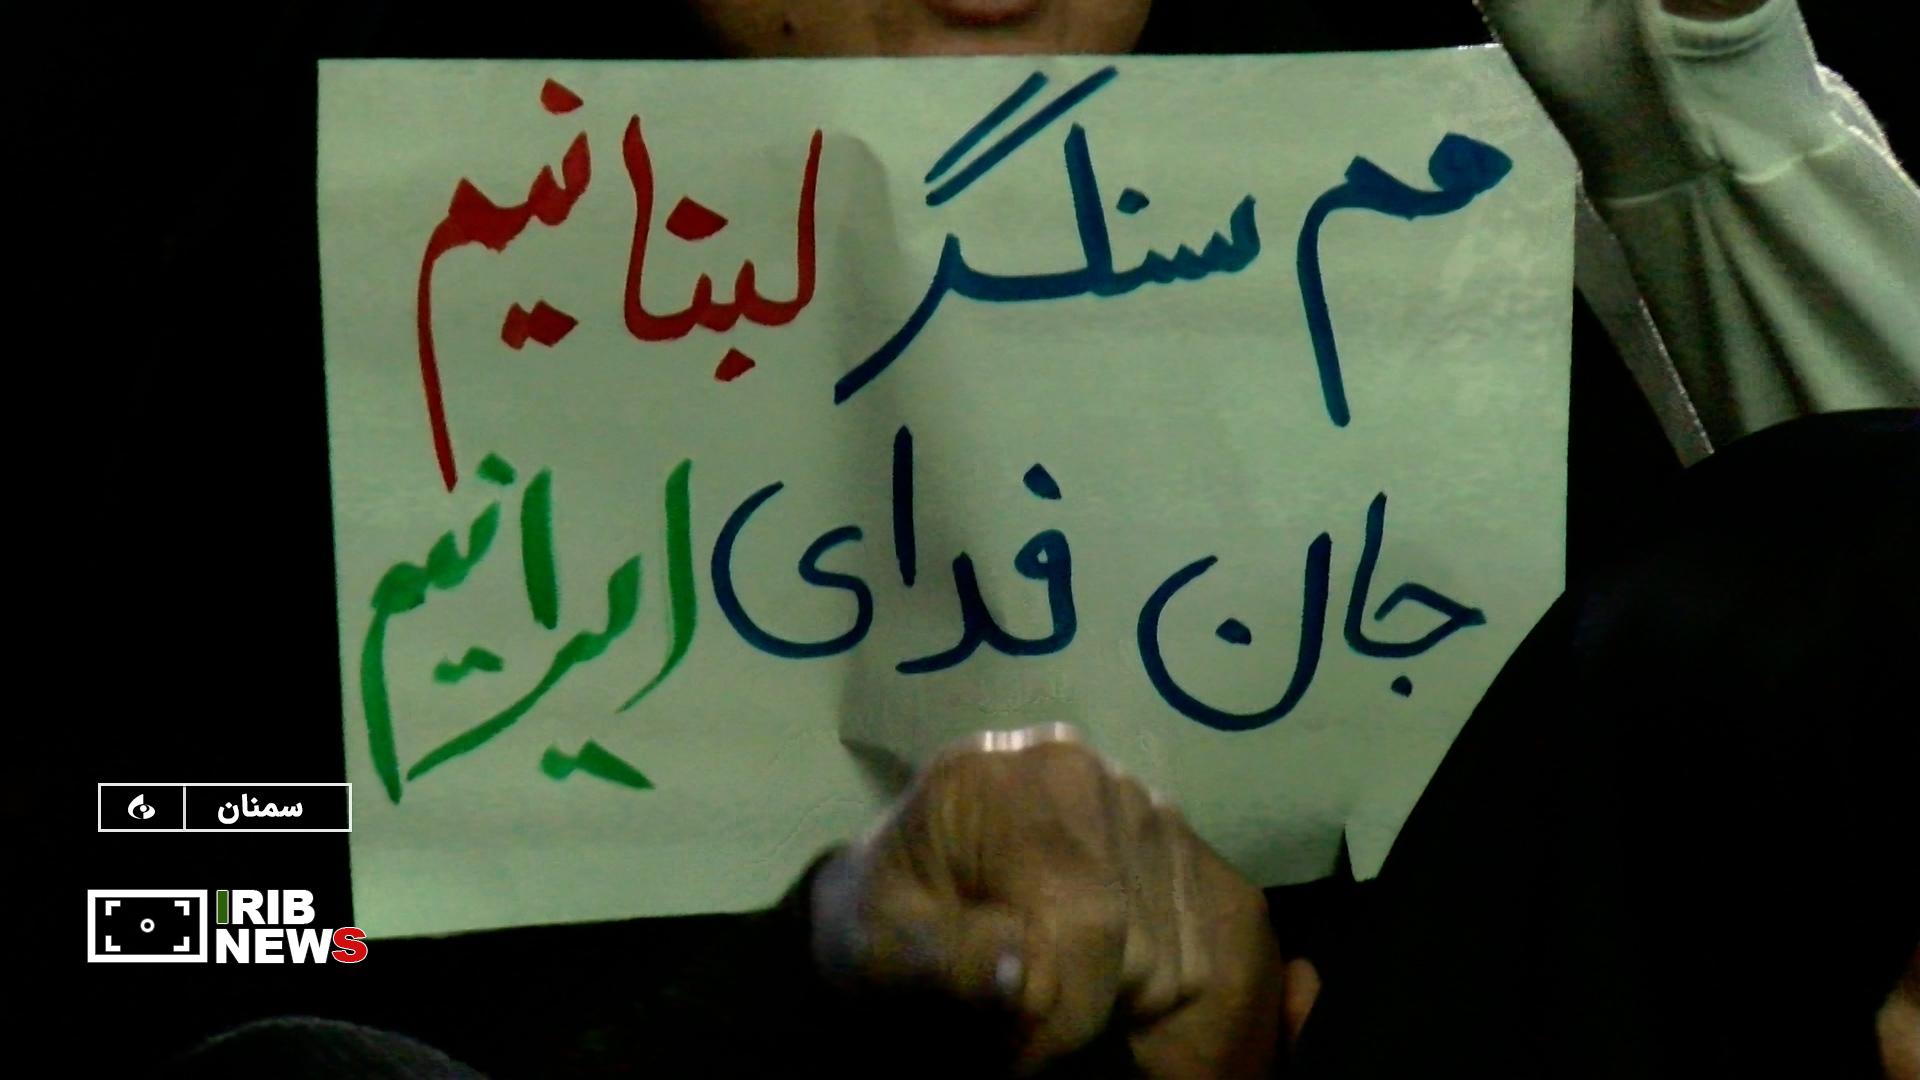 هم سنگر لبنانیم
جان فدای ایرانیم
سمنان
IRIB
NEWS